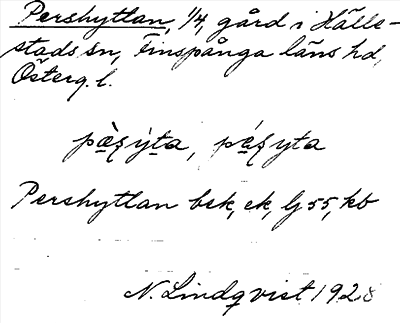 Pershyttan, 1/4, gård i Hälle-
stads sn, Finspånga läns hd,
Österg. l.
Pershyttan bsk, ek, lj 55, kb
N. Lindqvist 1928